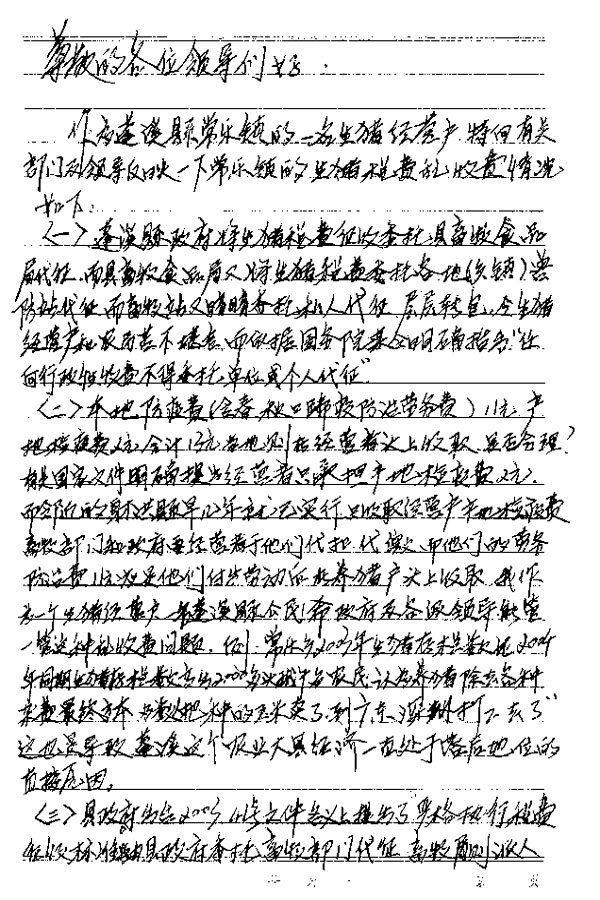 尊敬的各位领导们好：
作为蓬溪县常乐镇的一名生猪经营户，特向有关
部门及领导反映一下常乐镇的生猪税费乱收费情况
如下：
（一）蓬溪县政府将生猪税费征收委托县畜牧食品
局代征，而县畜牧食品局又将生猪税费委托各地（乡镇）兽
防站代征，而畜牧站又暗暗委托私人代征，层层转包，令生猪
经营户和农民苦不堪言，而依据国务院某令明确指出"任
何行政性收费不得委托单位或个人代征"
（二）本地防疫费（含春、秋口蹄疫防治劳务费）11元，产
地检疫费2元，合计13元，当地则在经营者头上收取，是否合理？
国家文件明确提出经营者只承担产地检疫费2元，
而邻近的射洪县早几年就已实行只收取经营户产地检疫费
畜牧部门和政府要经营者于他们代扣代缴，而他们的劳务
防治费11元应是他们付出劳动后在养猪户头上收取，我作
为一个生猪经营户一名蓬溪县公民，希政府及各级领导能管
一管这种乱收费问题，例：常乐乡2005年生猪存栏数比2004
年同期生猪存栏数少2000多头，农民认为养猪除去各种
税费最终亏本，只能把种的玉米卖了，到广东、深圳打工去了"
这也是导致蓬溪这个农业大县经济一直处于落后地位的
直接原因。
（三）县政府在2005 号文件会议上提出了严格执行税费
征收标准，县政府委托畜牧部门代征，畜牧局则派人
第 页